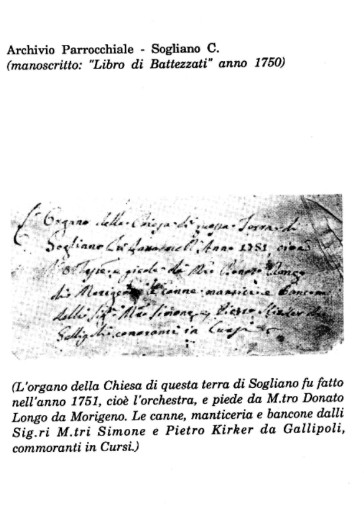 Archivio Parrocchiale - Sogliano C.
(manoscritto: "Libro di Battezzati" anno 1750)
Organo della Chiesa di questa Terra di
Sogliano nell'Anno 1751 cioè
e piede da Donato Longo
da Morigeno canne manticeria e bancone
dalli Simone e Pietro Kirker da
commoranti in Cursi
(L'organo della Chiesa di questa terra di Sogliano fu fatto
nell'anno 1751, cioè l'orchestra, e piede da M.tro Donato
Longo da Morigeno. Le canne, manticeria e bancone dalli
Sig.ri M.tri Simone e Pietro Kirker da Gallipoli,
commoranti in Cursi.)